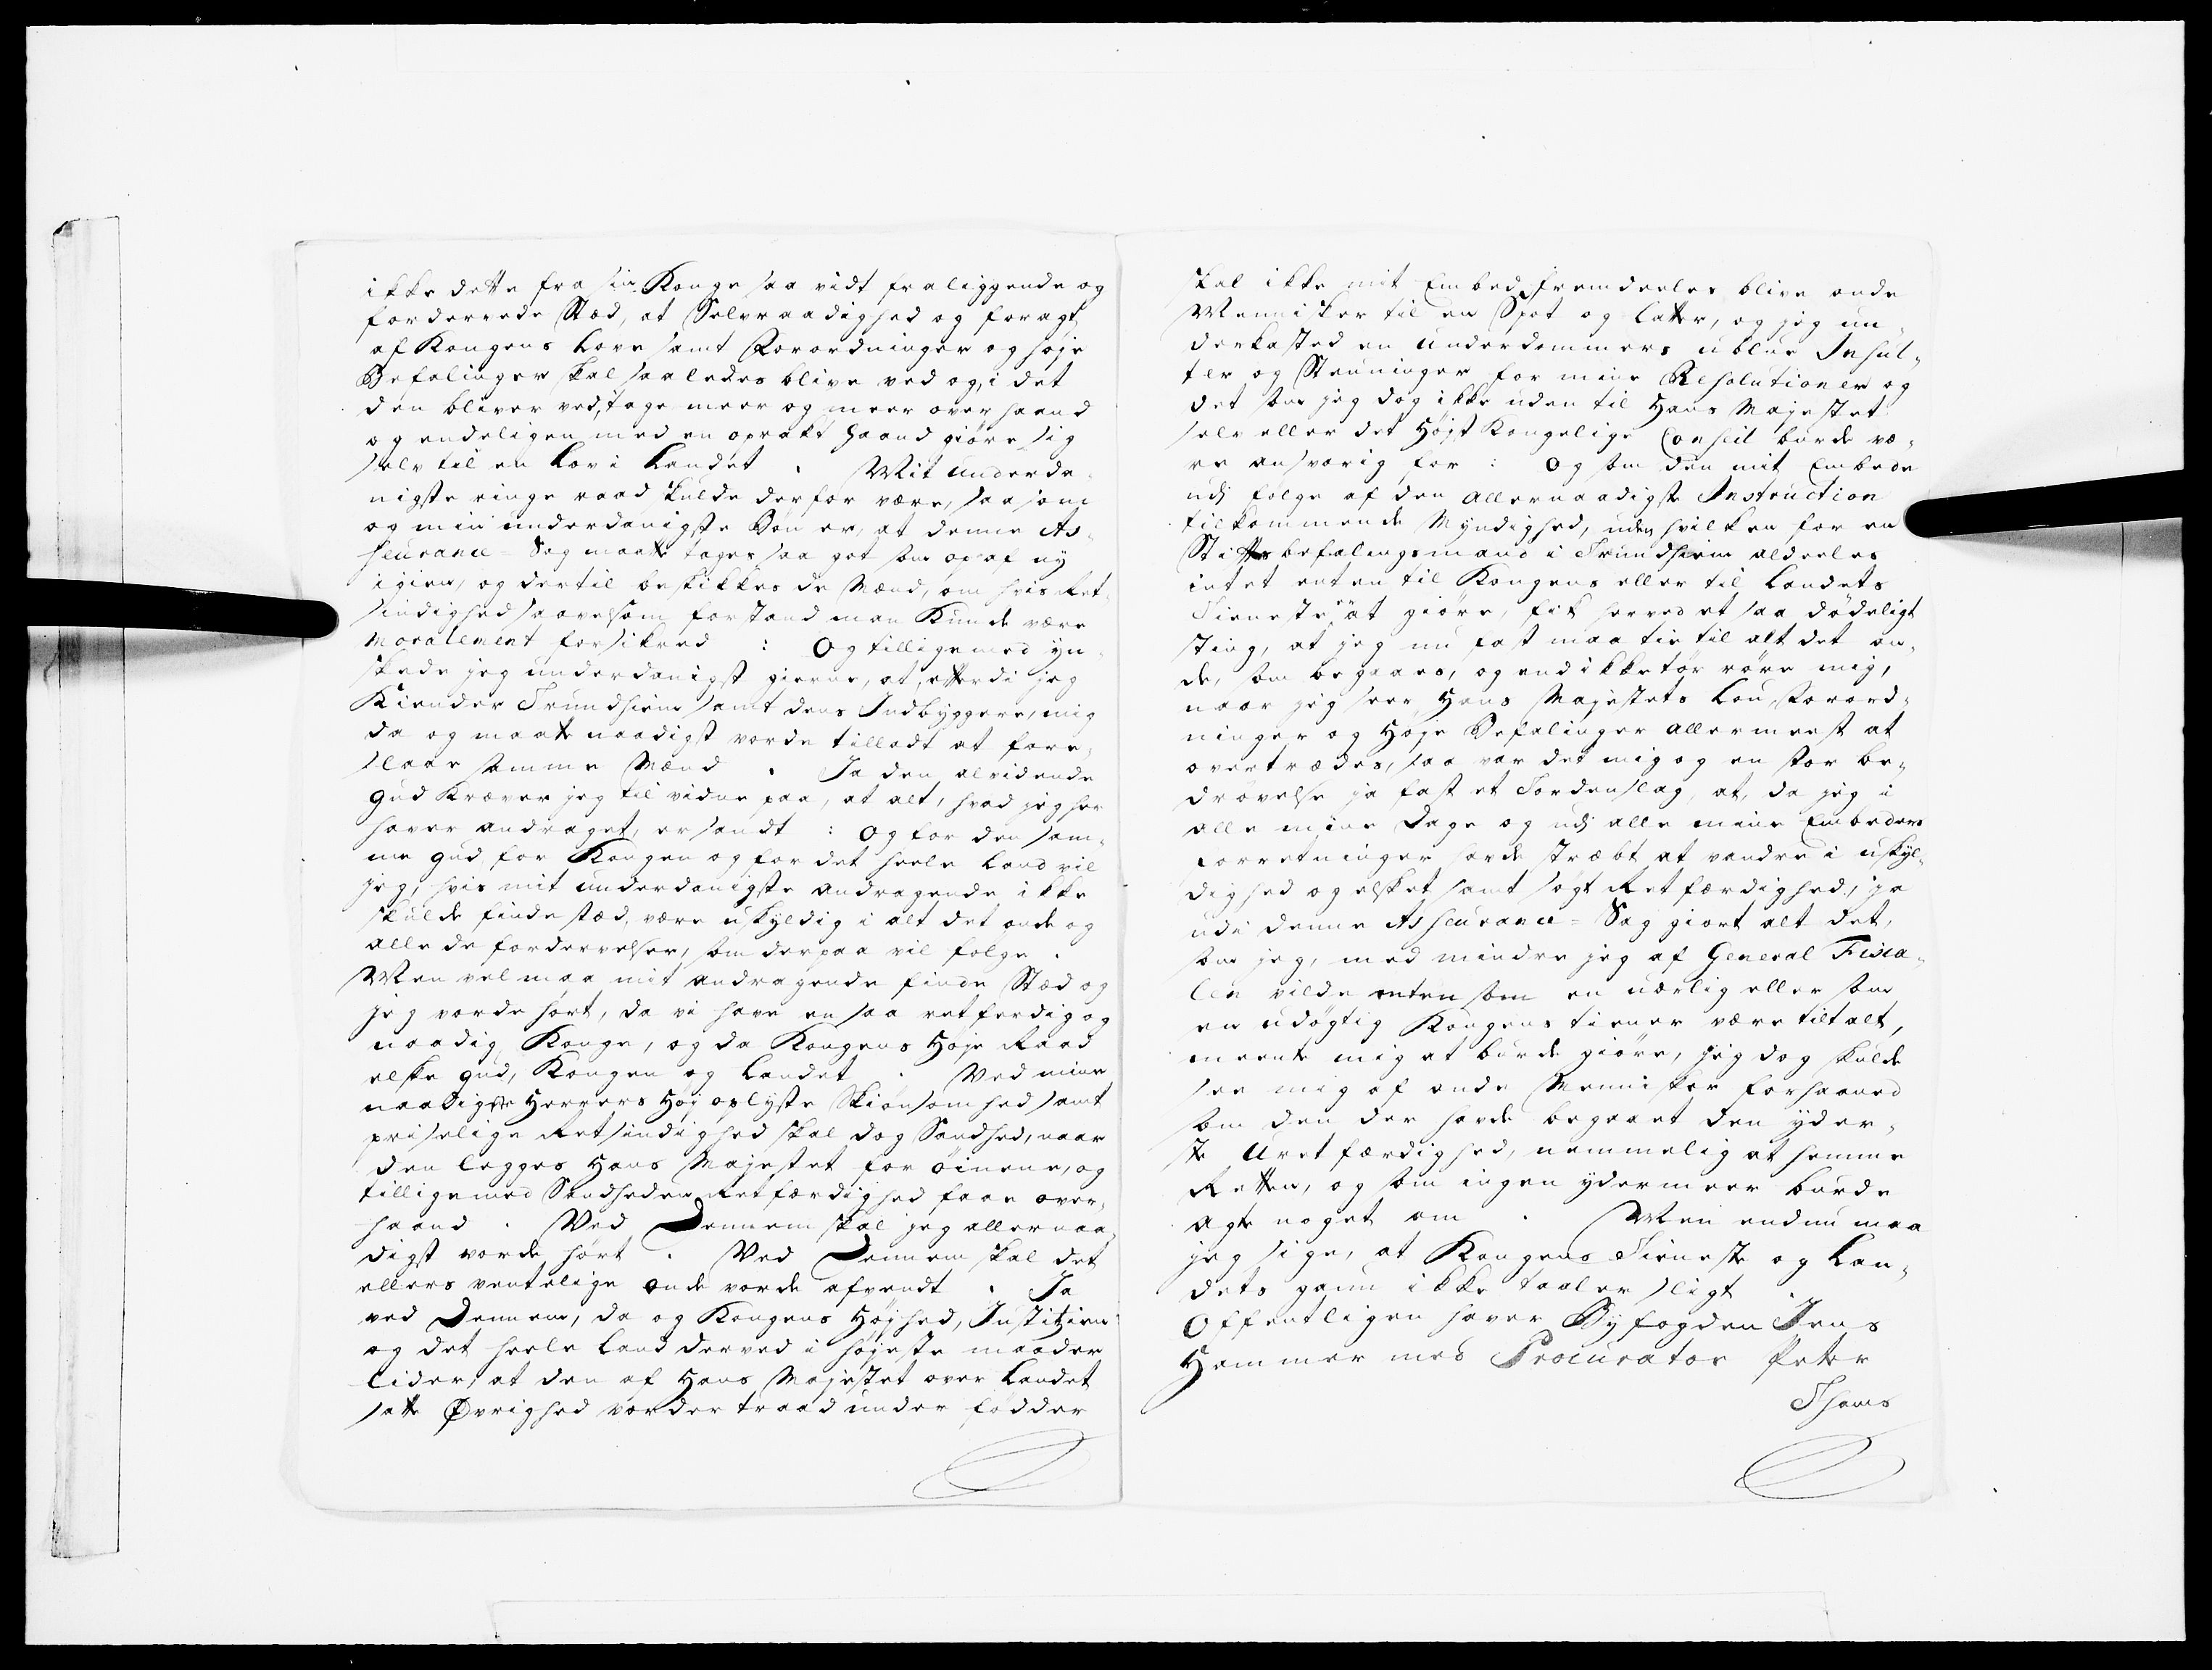 ikke dette fra sin Konge saa vidt fraliggende og
fordervede Stæd, at Selvraadighed og foragt
af Kongens Love samt Forordninger og høje
Befalinger skal saaledes blive ved og, i det
den bliver ved, tage meer og meer over haand
og endeligen med en oprakt Haand giøre sig
selv til en Lov i Landet . Mit underda-
nigste ringe raad skulde derfor være, saasom
og min underdanigste Bøn er, at denne As-
seurance-Sag maatte tages saa got som op af ny
igien, og dertil beskikkes de Mænd, om hvis Ret-
sindighed saavelsom forstand man Kunde være
moralement forsikred : Og tilligemed yn-
skede jeg underdanigst gierne, at, efterdi jeg
Kiender Trundhiem samt dens Indbyggere, mig
da og maatte naadigst vorde tilladt at fore-
slaae samme Mænd . Ja den alvidende
Gud Kræver jeg til vidne paa, at alt, hvad jeg her
haver andraget, er sandt : Og for den sam-
me Gud, for Kongen og for det heele Land vil
jeg, hvis mit underdanigste andragende ikke
skulde finde stæd, være uskyldig i alt det onde og
alle de fordervelser, som derpaa vil følge .
Men vel maa mit andragende finde Stæd og
jeg vorde hørt, da vi have en saa retferdig og
naadig Konge, og da Kongens Høje Raad
elske Gud, Kongen og Landet . Ved mine
naadigste Herrers Høj oplyste Skiønsomhed samt
priselige Retsindighed skal dog Sandhed, naar
den legges Hans Majestet for øinene, og
tilligemed Sandheden Retfærdighed faae over-
haand . Ved Dennem skal jeg allernaa-
digst vorde hørt . Ved Dennem skal det
ellers ventelige onde vorde afvendt . Ja
ved Dennem, da og Kongens Højhed, Justitzien
og det heele Land derved i højeste maader
lider, at den af Hans Majestet over Landet
satte Øvrighed vorder traad under fødder
skal ikke mit Embed fremdeeles blive onde
Mennisker til en Spot og latter, og jeg un-
derkasted en underdommers ublue Insul-
ter og Stevninger for mine Resolutioner og
det som jeg dog ikke uden til Hans Majestet
selv eller det Højst Kongelige Conseil burde væ-
re ansvarig for : Og som den mit Embede
udj følge af den allernaadigste Instruction
tilkommende Myndighed, uden hvilken for en
Stiftsbefalingsmand i Trundhiem aldeeles
intet enten til Kongens eller til Landets
Tieneste er at giøre, fik herved et saa dødeligt
sting, at jeg nu fast maa tie til alt det on-
de, som begaaes, og end ikke tør røre mig,
naar jeg seer Hans Majestets Lou, Forord-
ninger og Høje Befalinger allermeest at
overtrædes, saa var det mig og en stor be-
drøvelse ja fast et Tordenslag, at, da jeg i
alle mine Dage og udj alle mine Embeders
forretninger havde stræbt at vandre i uskyl-
dighed og elsket samt søgt Retfærdighed, ja
udi denne Asseurance-Sag giort alt det,
som jeg, med mindre jeg af General Fisca-
len vilde enten som en uærlig eller som
en udøgtig Kongens tiener være tiltalt,
meente mig at burde giøre, jeg dog skulde
see mig af onde Mennisker forhaaned
som den der havde begaaet den yder-
ste Uretfærdighed, nemmelig at hemme
Retten, og som ingen ydermeer burde
agte noget om . Men endnu maa
jeg sige, at Kongens Tieneste og Lan-
dets gavn ikke taaler sligt .
Offentligen haver Byfogden Jens
Hammer med Procurator Peter
Thams